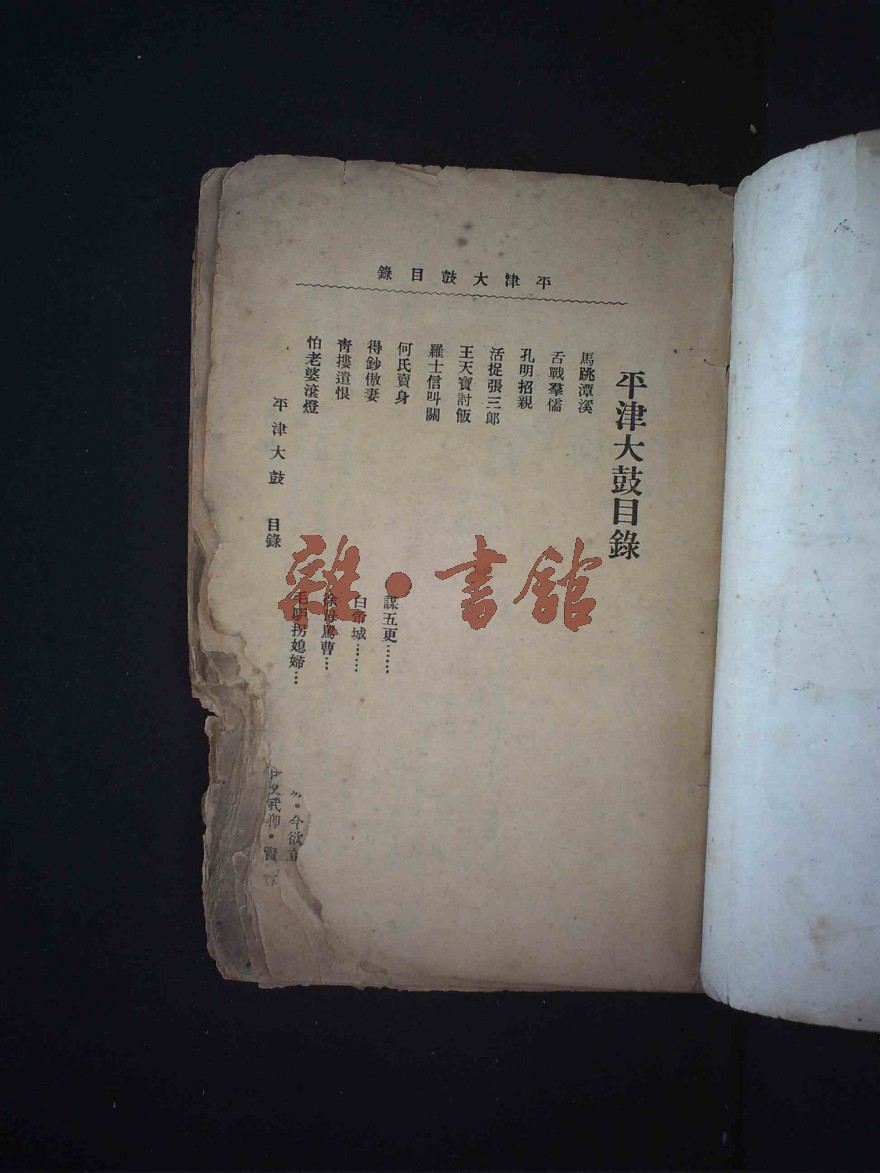 平津大鼓目錄
平津大鼓目錄
馬跳潭溪
舌戰羣儒
孔明招親
活捉張三郎
王天寶討飯
羅士信叫關
何氏賣身
得鈔傲妻
青摟遣恨
怕老婆滾燈
謀五更……
白帝城……
徐母罵曹…
毛明拐媳婦…
平津大鼓 目錄
今欲
賢
雜·書館